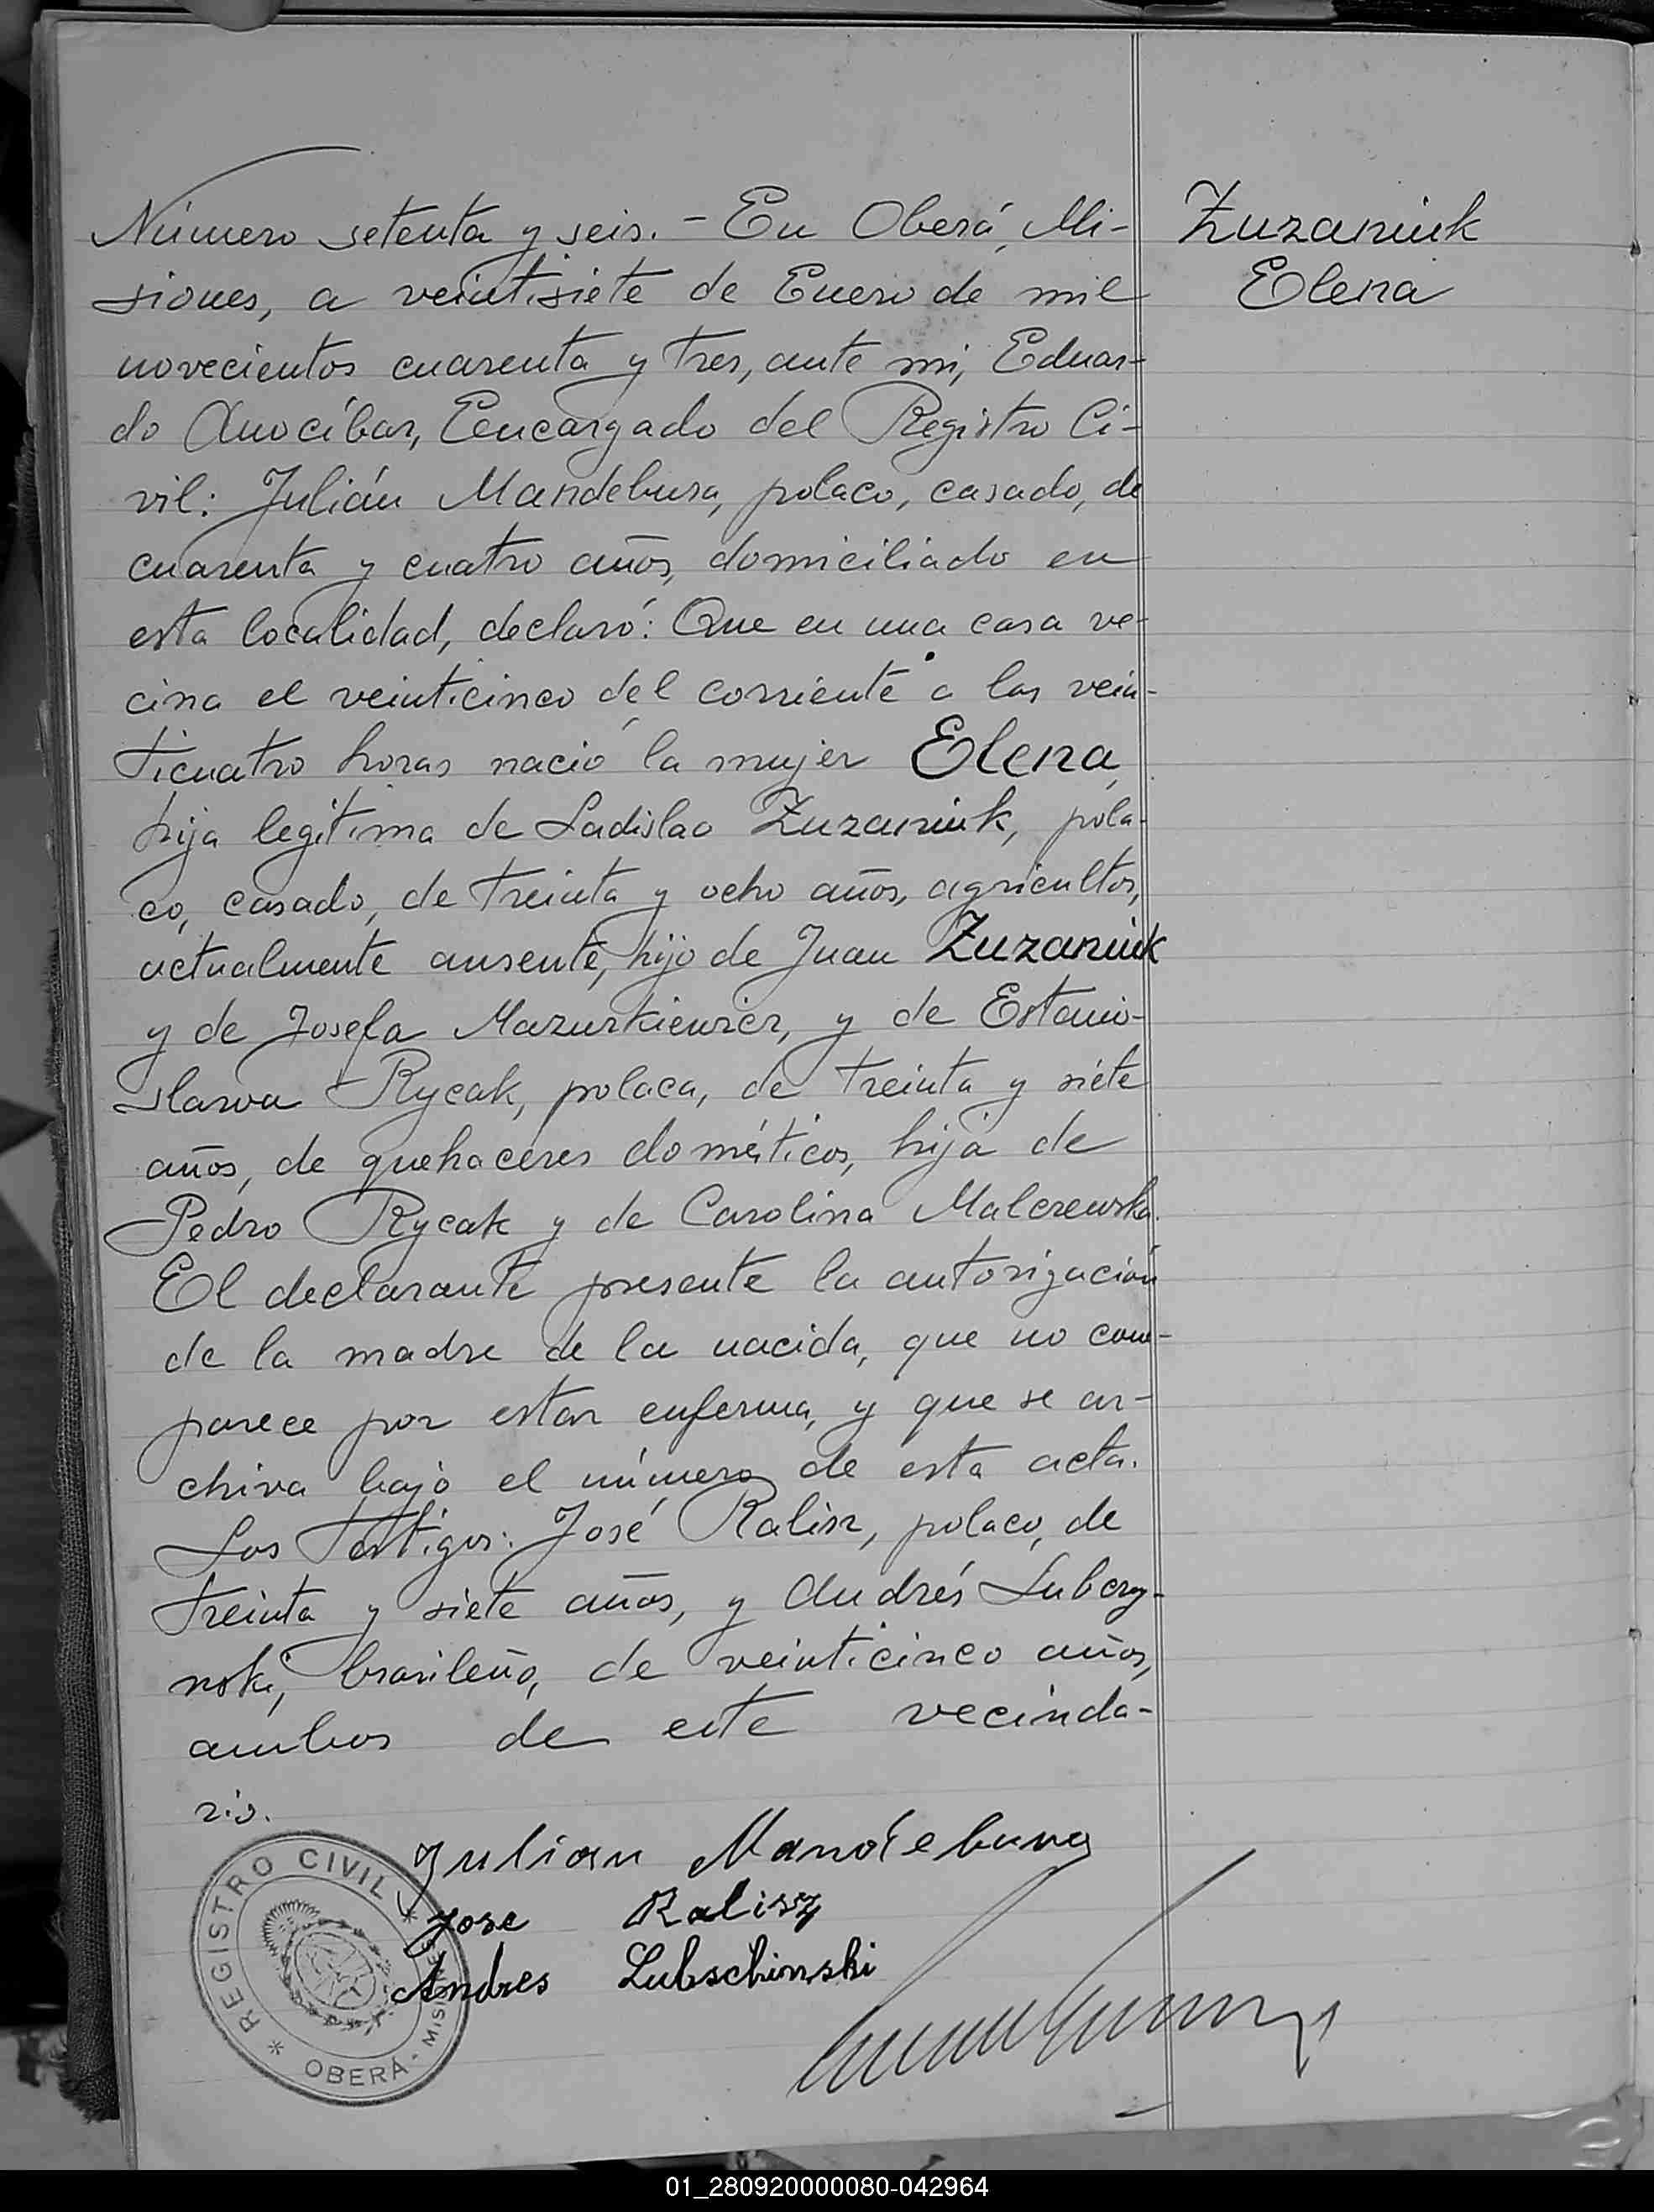 Número setenta y seis. - En Oberá, Mi-
siones, a veintisiete de Enero de mil
novecientos cuarenta y tres, ante mi, Eduar-
do Anocíbar, Eencargado del Registro Ci-
vil: Julián Mandebura, polaco, casado, de
cuarenta y cuatro años, domiciliado en
esta localidad, declaró: Que en una casa ve-
cina el veinticinco del corriente a las vein-
ticuatro horas nació la mujer Elena,
hija legítima de Ladislao Zuzaniuk, pola-
co, casado, de treinta y ocho años, agricultor,
actualmente ausente, hijo de Juan Zuzaniuk
y de Josefa Mazurkiewicz, y de Estanis-
slawa Rycak, polaca, de treinta y siete
años, de quehaceres domésticos, hija de
Pedro Rycak y de Carolina Malczewska.
El declarante presente la autorización
de la madre de la nacida, que no com-
parece por estar enferma, y que se ar-
chiva bajo el número de esta acta.
Los Testigos: José Kalisz, polaco, de
treinta y siete años, y Andrés Lubczy-
nski, brasileño, de veinticinco años,
ambos de este vecinda-
rio.
Julian Mandebura
Jose Kalisz
Andres Lubschinski
Zuzaniuk
Elena
* REGISTRO CIVIL *
OBERÁ - MISIONES
01_280920000080-042964